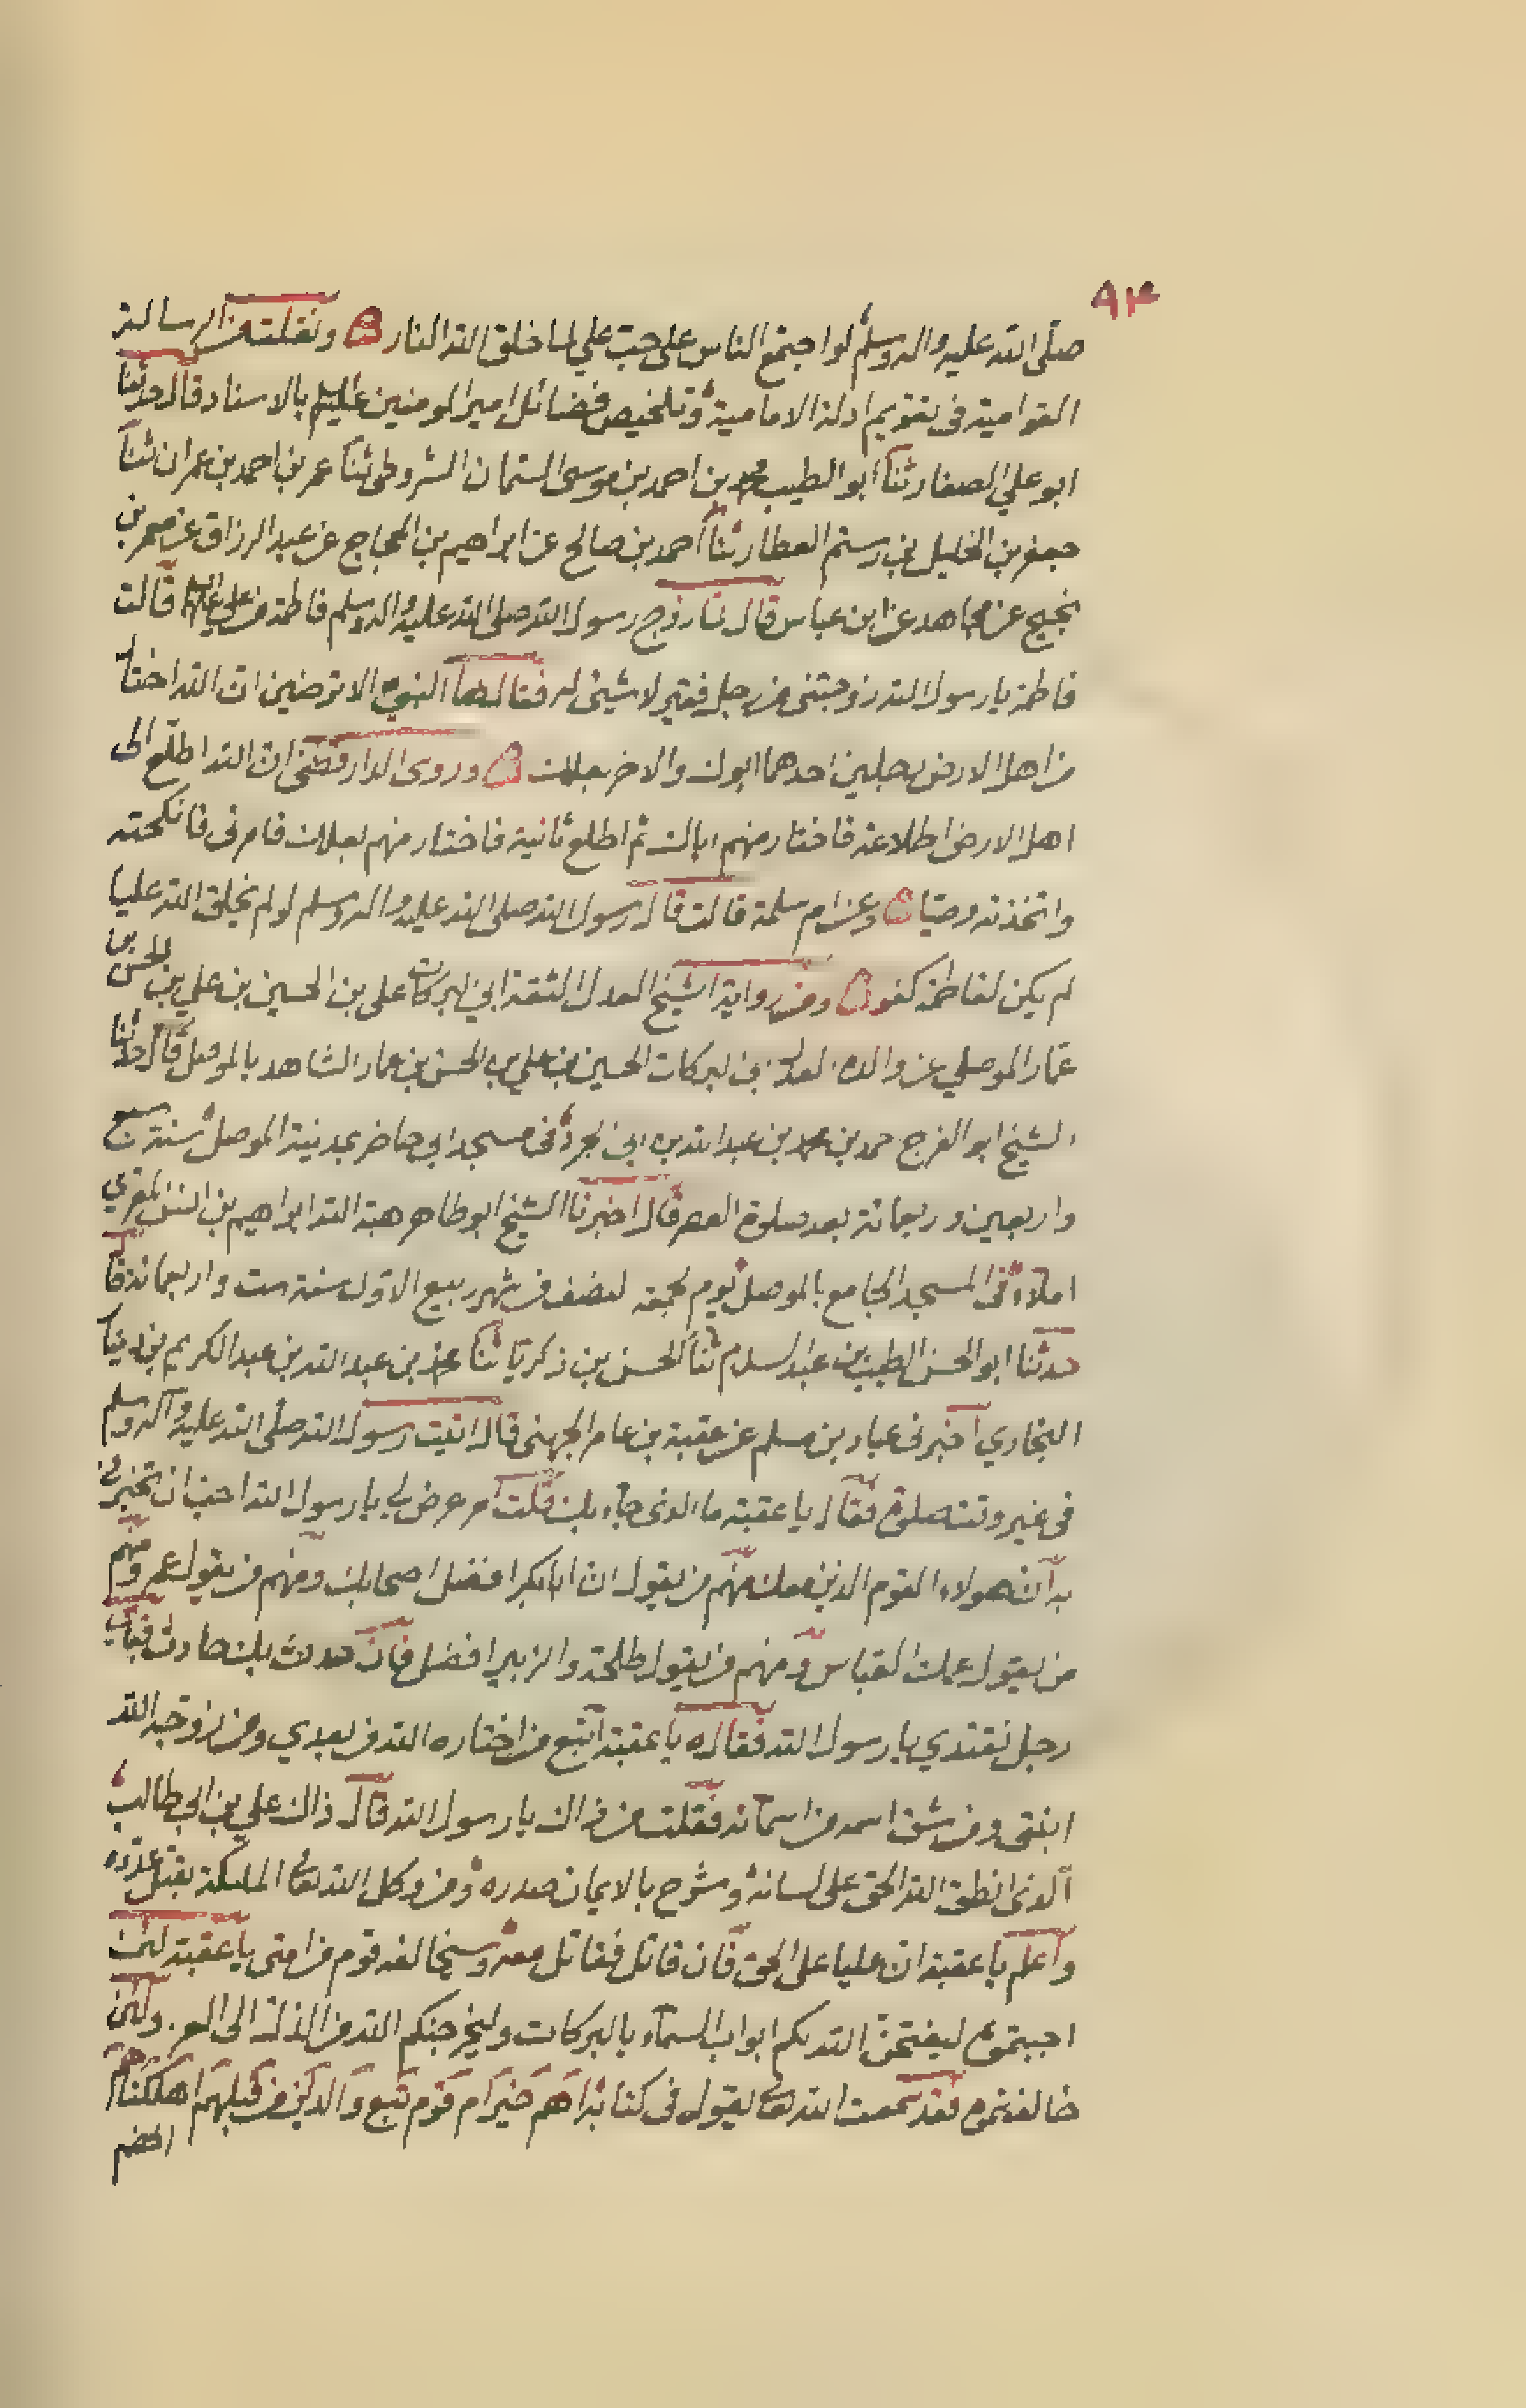 ٩٣
صلى الله عليه واله وسلم لو اجتمع الناس على حب علي لما خلق الله النار ونقلت من الرسالة
القوامية فى تقويم ادلة الامامية وتلخيص فضائل امير المومنين عليه السلم بالاسناد قال حدثنا
ابو علي الصفار ثنا ابو الطيب محمد بن احمد بن موسى الستمان الشروطى ثنا عمر بن احمد بن عمران ثنا
جعفر بن الخليل بن رستم العطار ثنا احمد بن صالح عن ابراهيم بن الحجاج عن عبد الرزاق عن معمر بن
نجيح عن مجاهد عن ابن عباس قال لما زوج رسول الله صلى الله عليه واله وسلم فاطمة من علي قالت
فاطمة يا رسول الله زوجتنى من رجل فقير لا شيئ له فقال لها النبي الا ترضين ان الله اختار
من اهل الارض رجلين احدهما ابوك والاخر بعلك وروى الدارقطنى ان الله اطلع الى
اهل الارض اطلاعة فاختار منهم اباك ثم اطلع ثانية فاختار منهم بعلك فامرنى فانكحته
واتخذته وصيا وعن ام سلمة قالت قال رسول الله صلى الله عليه واله وسلم لو لم يخلق الله عليا
لم يكن لفاطمة كفو ومن رواية الشيخ العدل الثقة ابي البركات علي بن الحسين بن علي بن الحسن بن
عمار الموصلي عن والده العدل ابي البركات الحسين بن علي بن الحسن بن عمار الشاهد بالموصل قال حدثنا
الشيخ ابو الفرج محمد بن محمد بن عبد الله بن ابي فى مسجد ابي حاضر بمدينة الموصل سنة سبع
واربعين وربعمائة بعد صلوة العصر قال اخبرنا الشيخ ابو طاهر هبة الله ابراهيم بن المقري
املاء فى المسجد الجامع بالموصل يوم الجمعة لنصف من شهر ربيع الاول سنة ست واربعمائة قال
حدثنا ابو الحسن الطيب بن عبد السلام ثنا الحسن بن زكريا ثنا محمد بن عبد الله بن عبد الكريم بن دينار
البخاري اخبرنى عباد بن مسلم عن عقبة بن عامر الجهنى قال اتيت رسول الله صلى الله عليه وآله وسلم
فى غير وقت صلوة فقال يا عقبة ما الذى جاء بك فقلت امر عرض لي يا رسول الله احب ان تخبرنى
به ان هولاء القوم الذين معك منهم من يقول ان ابا بكر افضل اصحابك ومنهم من يقول عمر ومنهم
من يقول عمك العباس ومنهم من يقول طلحة والزبير افضل فان حدث بك حادث فباي
رجل نقتدي يا رسول الله فقال يا عقبة اتبع من اختاره الله من بعدي ومن زوجه الله
ابنتى ومن شق اسمه من اسمائه فقلت من ذاك يا رسول الله قال ذاك علي بن ابي طالب
الذى انطق الله الحق على لسانه وشرح بالايمان صدره ومن وكل الله تعالى الملئكة بقتل عدوه
واعلم يا عقبة ان عليا على الحق فان قاتل فقاتل معه وسيخالفه قوم من امتى يا عقبة لئن
اجبتموه ليفتحن الله لكم ابواب السماء بالبركات وليخرجنكم الله من الذلة الى العز ولئن
خالفتموه فقد سمعت الله تعالى يقول فى كتابه اهم خير ام قوم تبع والذين من قبلهم اهلكناهم
انهم